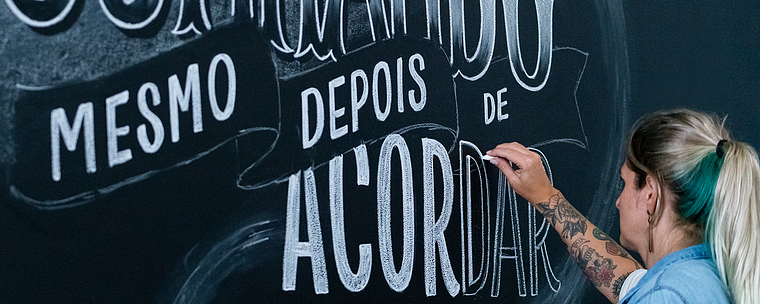 MESMO DEPOIS DE
ACORDAR